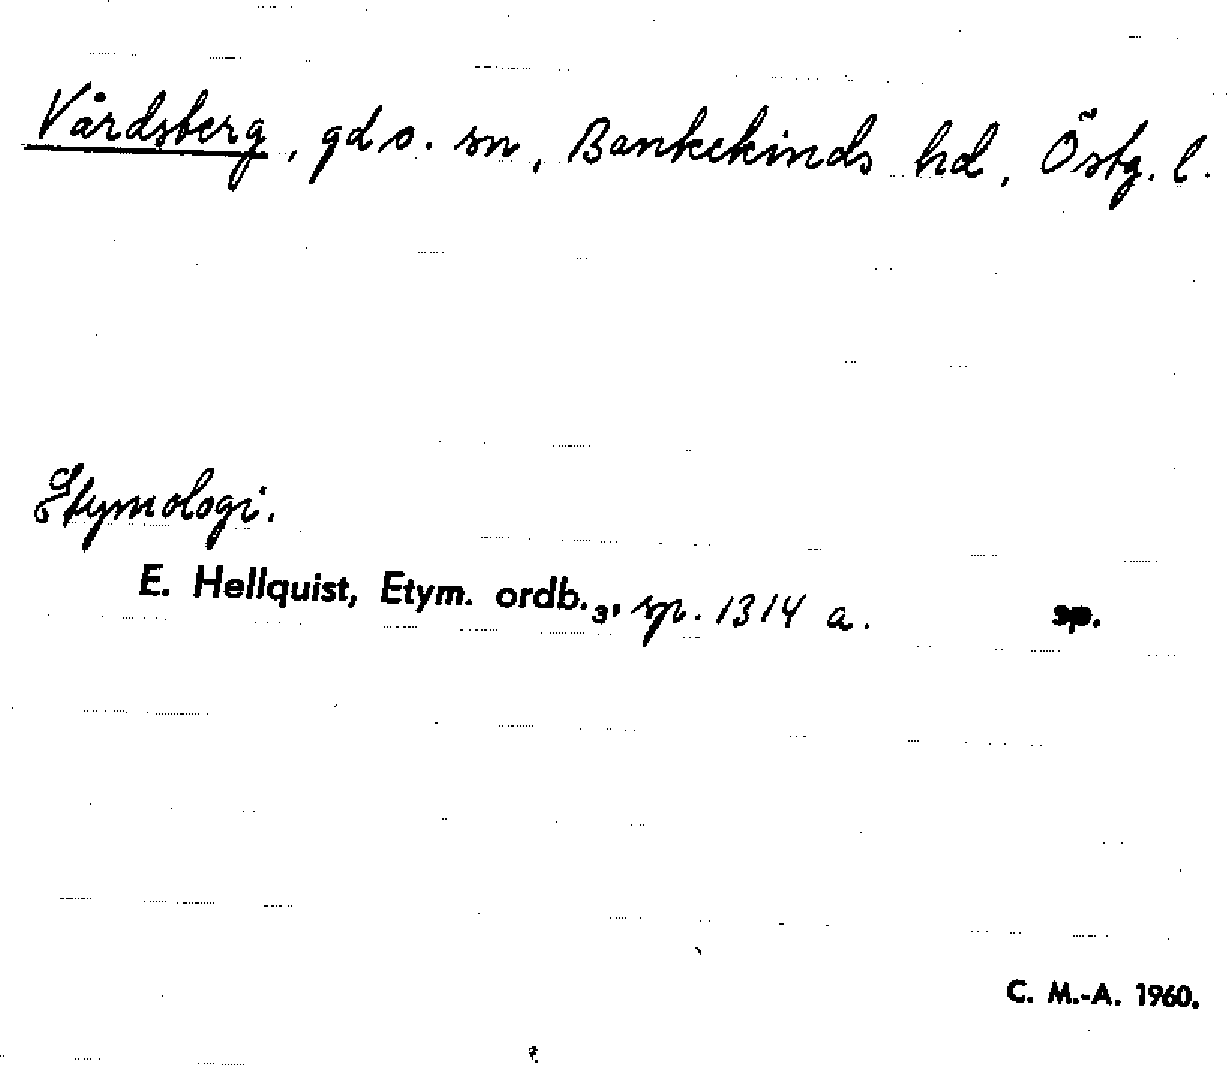 Vårdsberg, gd o. sn, Bankekinds hd, Östg. l.
Etymologi.
E. Hellquist, Etym. ordb.3, sp. 1314 a. sp.
C. M.-A. 1960.